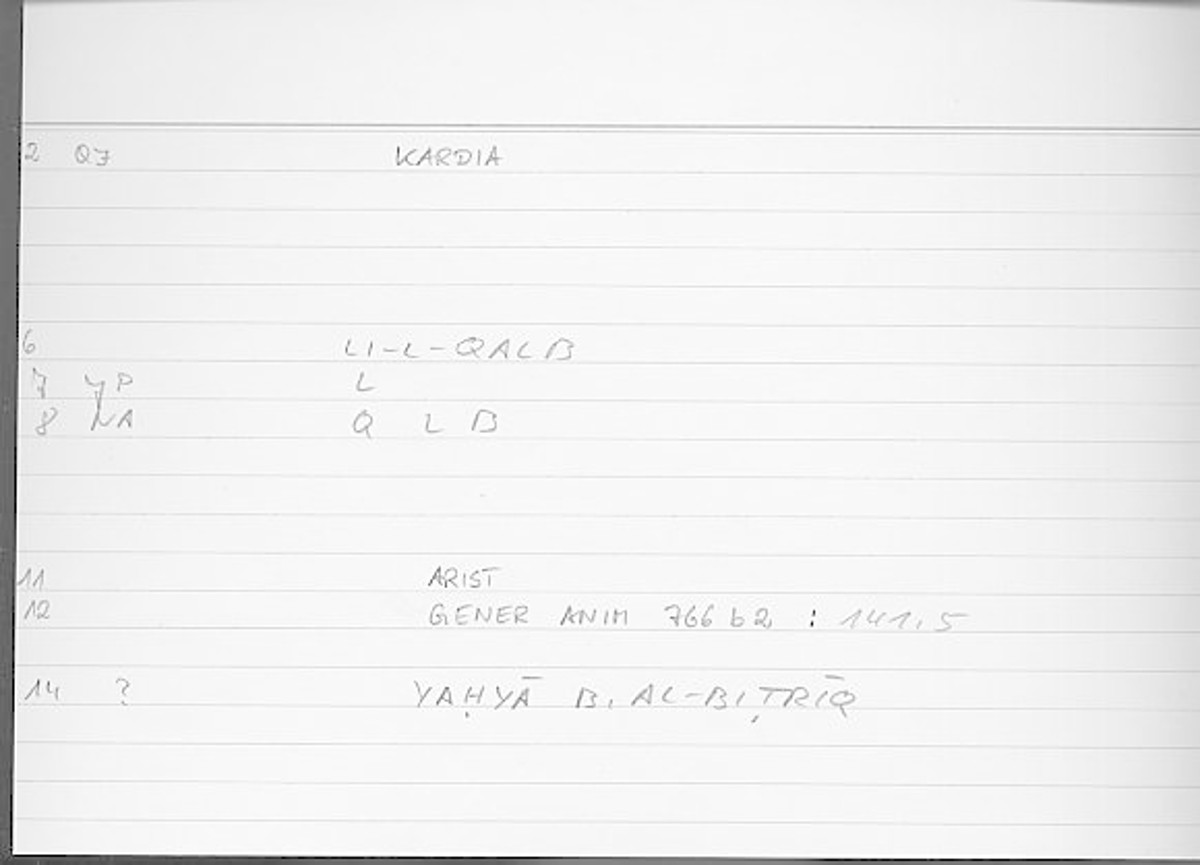 2 QJ KARDIA
6 LI-L-QALB
7 YP L
8 NA Q L B
11 ARIST
12 GENER ANIM 766 b 2 : 141,5
14 ? YAḤYĀ B. AL-BIṬRĪQ